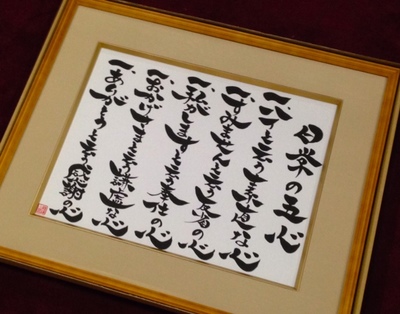 日常の五心
一、ハイと云う素直な心
一、すみませんと云う反省の心
一、私がしますと云う奉仕の心
一、おかげさまと云う謙虚な心
一、ありがとうと云う感謝の心